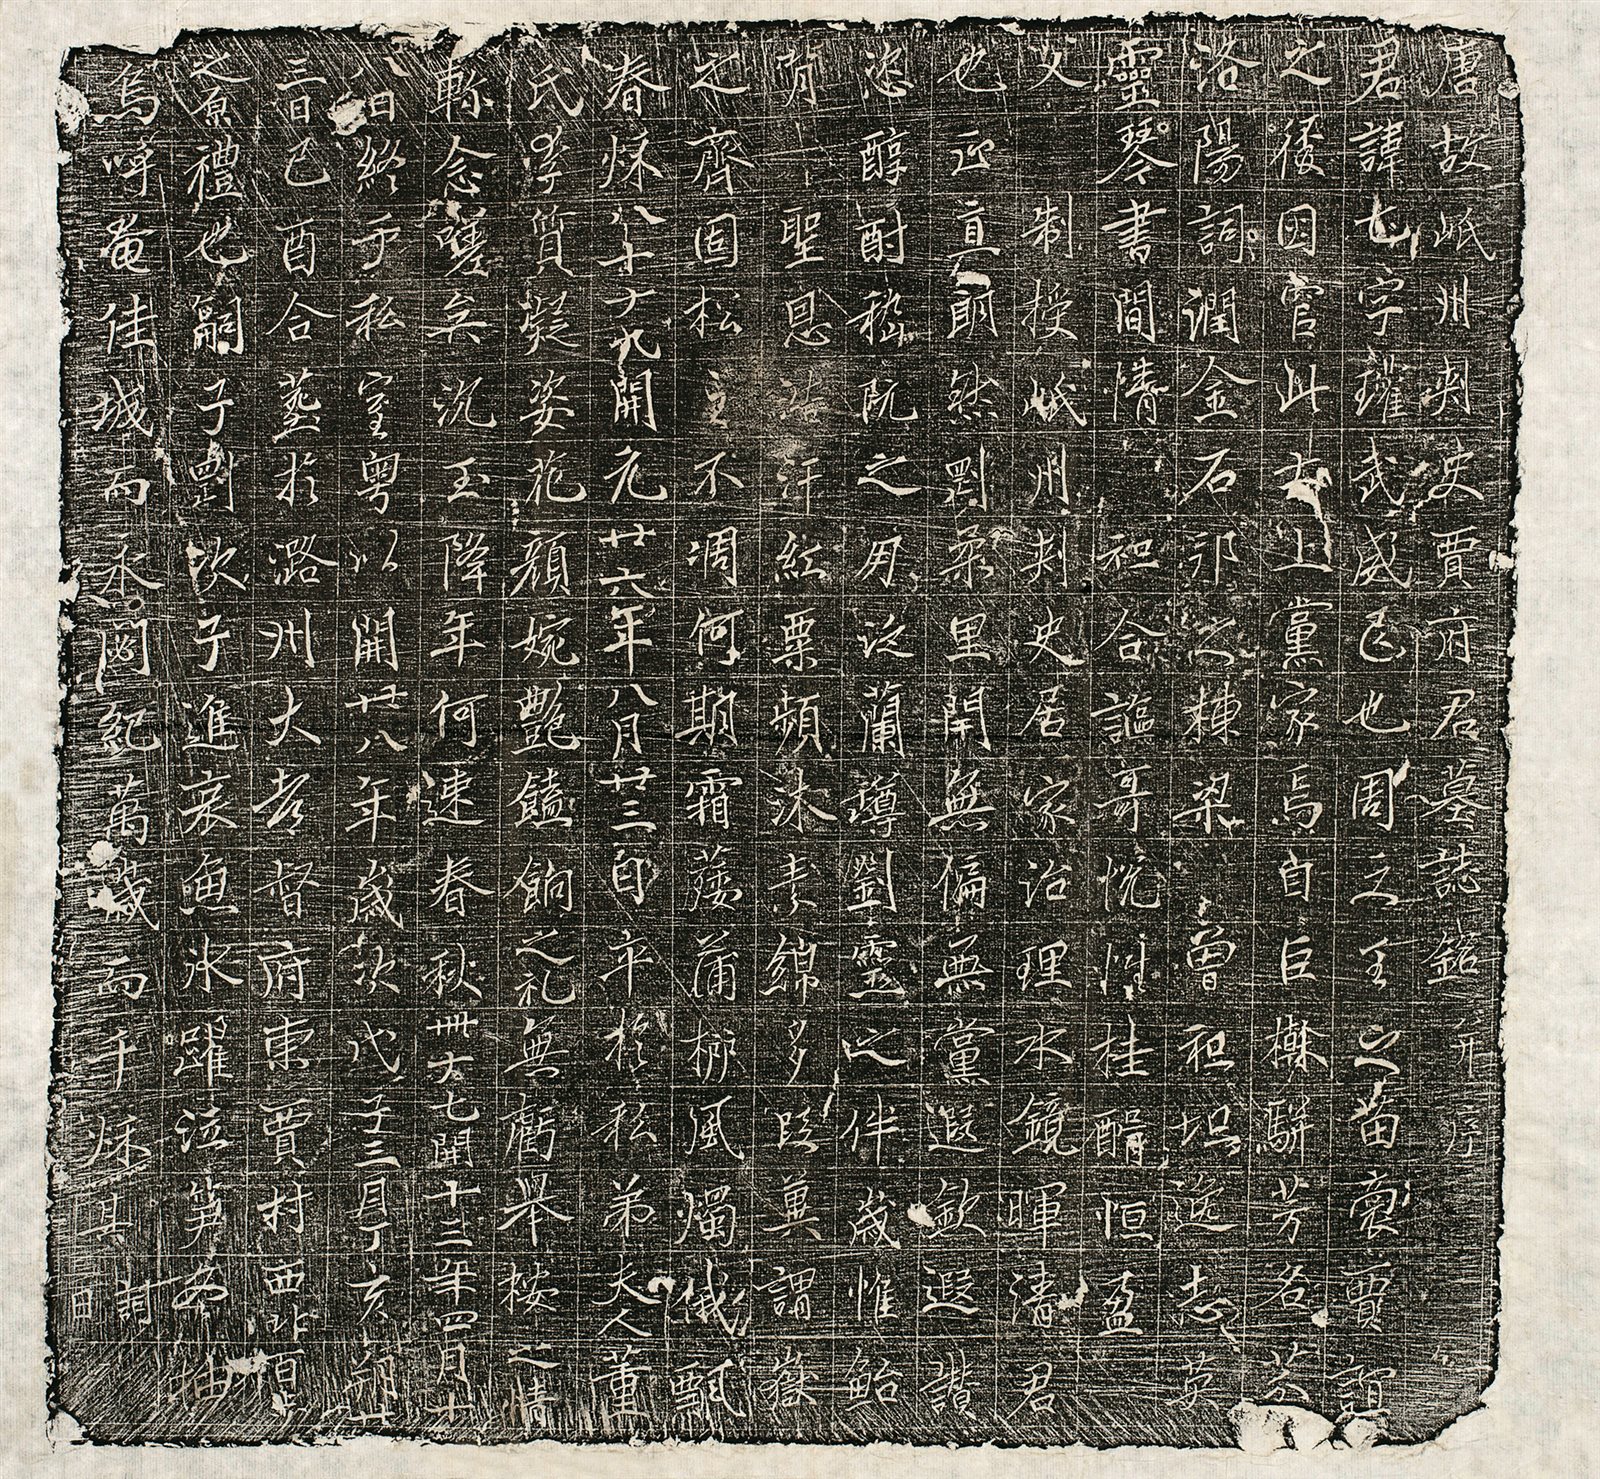 唐故岷州刺史賈府君墓誌銘并序
君諱七字護武威人也周之王之苗裔賈誼
之後因官此土上黨家焉自巨櫱騈芳名芬
洛陽詞潤金石邠之棟梁曾祖坦逸志英
靈琴書閒情祖合謳哥悅性桂醑恒盈
父制授岷州刺史居家治理水鏡暉清君
也正直朗然對柔里閈無偏無黨遐欽遐讃
恣醇酎嵇阮之用泛蘭罇劉靈之伴歲惟鮐
背聖恩洽汗紅粟頻沐素綿多段冀謂嶽
之齊固松之不凋何期霜萎蒲柳風燭俄飄
春秋八十九開元廿六年八月廿三日卒於私弟夫人董
氏孕質凝姿花顏婉艷饁餉之礼無虧舉桉之情
軫念雙矣沉玉降年何速春秋卅七開十三年四月十
八日終于私室粵以開廿八年歲次戊子三月丁亥朔廿
三日己酉合葬於潞州大都督府東賈村西北百步
之原禮也嗣子劉次子進哀魚氷躍泣笋安抽
嗚呼奄佳城而永閟紀萬歲而千秋其詞曰